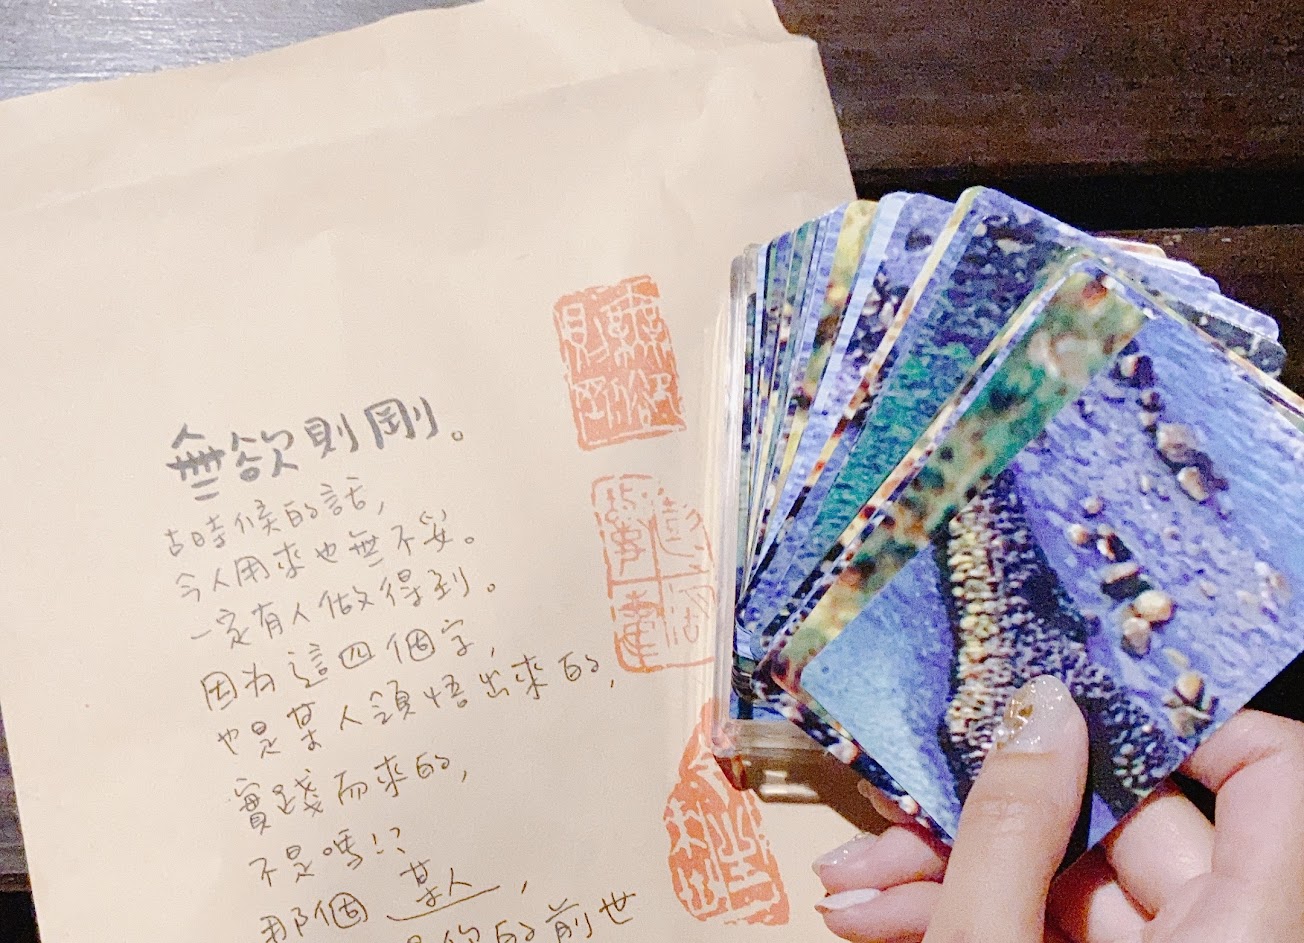 無欲則剛。
古時候的話,
今人用來也無不妥。
一定有人做得到。
因为這四個字,
也是某人領悟出來的,
實踐而來的,
不是嗎!?
那個 某人,
是你的前世
無欲
則剛